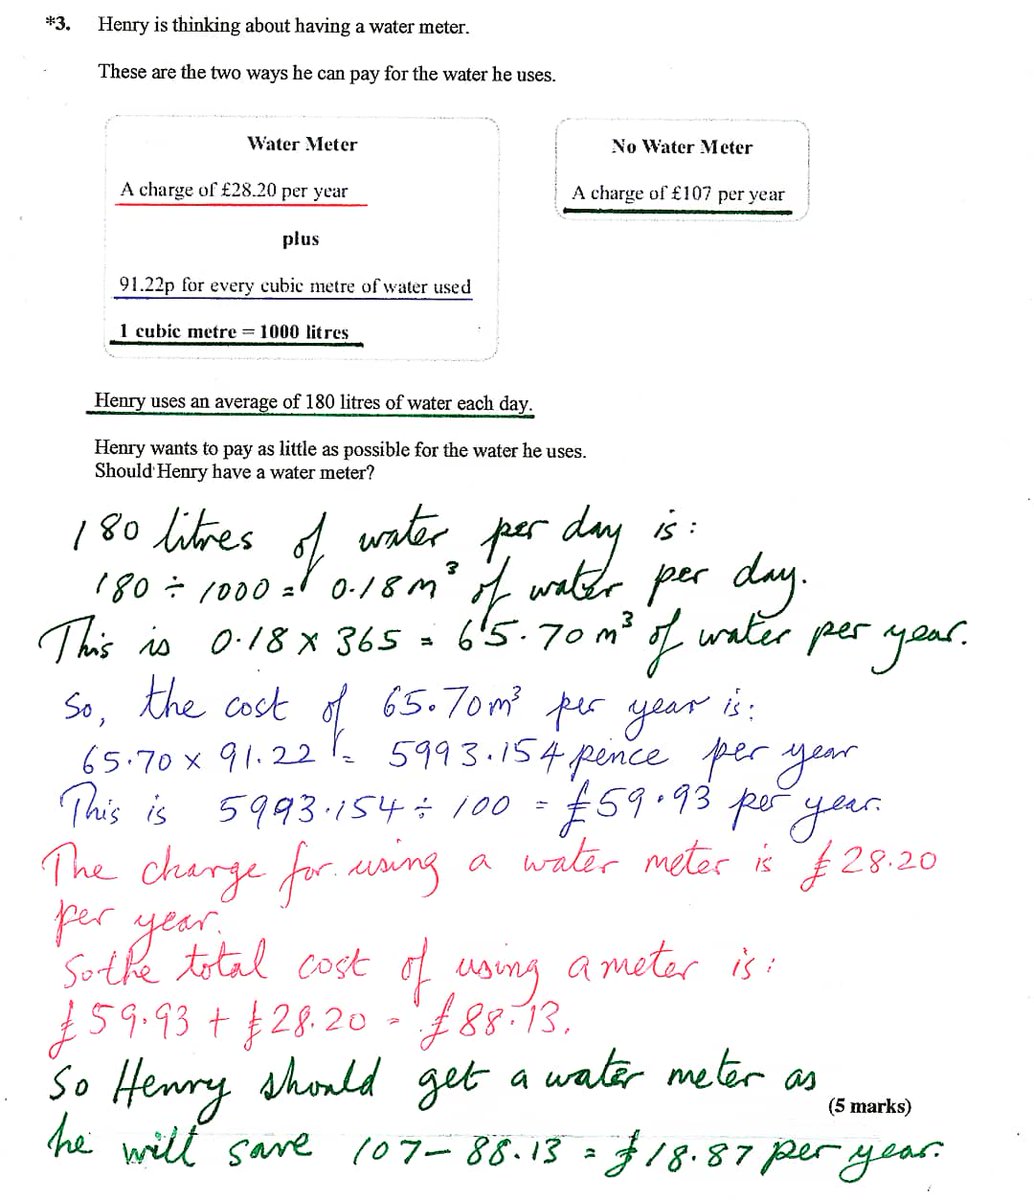 *3. Henry is thinking about having a water meter.
These are the two ways he can pay for the water he uses.
Water Meter
A charge of £28.20 per year
plus
91.22p for every cubic metre of water used
1 cubic metre = 1000 litres
No Water Meter
A charge of £107 per year
Henry uses an average of 180 litres of water each day.
Henry wants to pay as little as possible for the water he uses.
Should Henry have a water meter?
180 litres of water per day is:
180 ÷ 1000 = 0.18 m³ of water per day.
This is 0.18 × 365 = 65.70 m³ of water per year.
So, the cost of 65.70m³ per year is:
65.70 × 91.22 = 5993.154 pence per year
This is 5993.154 ÷ 100 = £59.93 per year.
The charge for using a water meter is £28.20
per year.
So the total cost of using a meter is:
£59.93 + £28.20 = £88.13.
So Henry should get a water meter as
(5 marks)
he will save 107 – 88.13 = £18.87 per year.